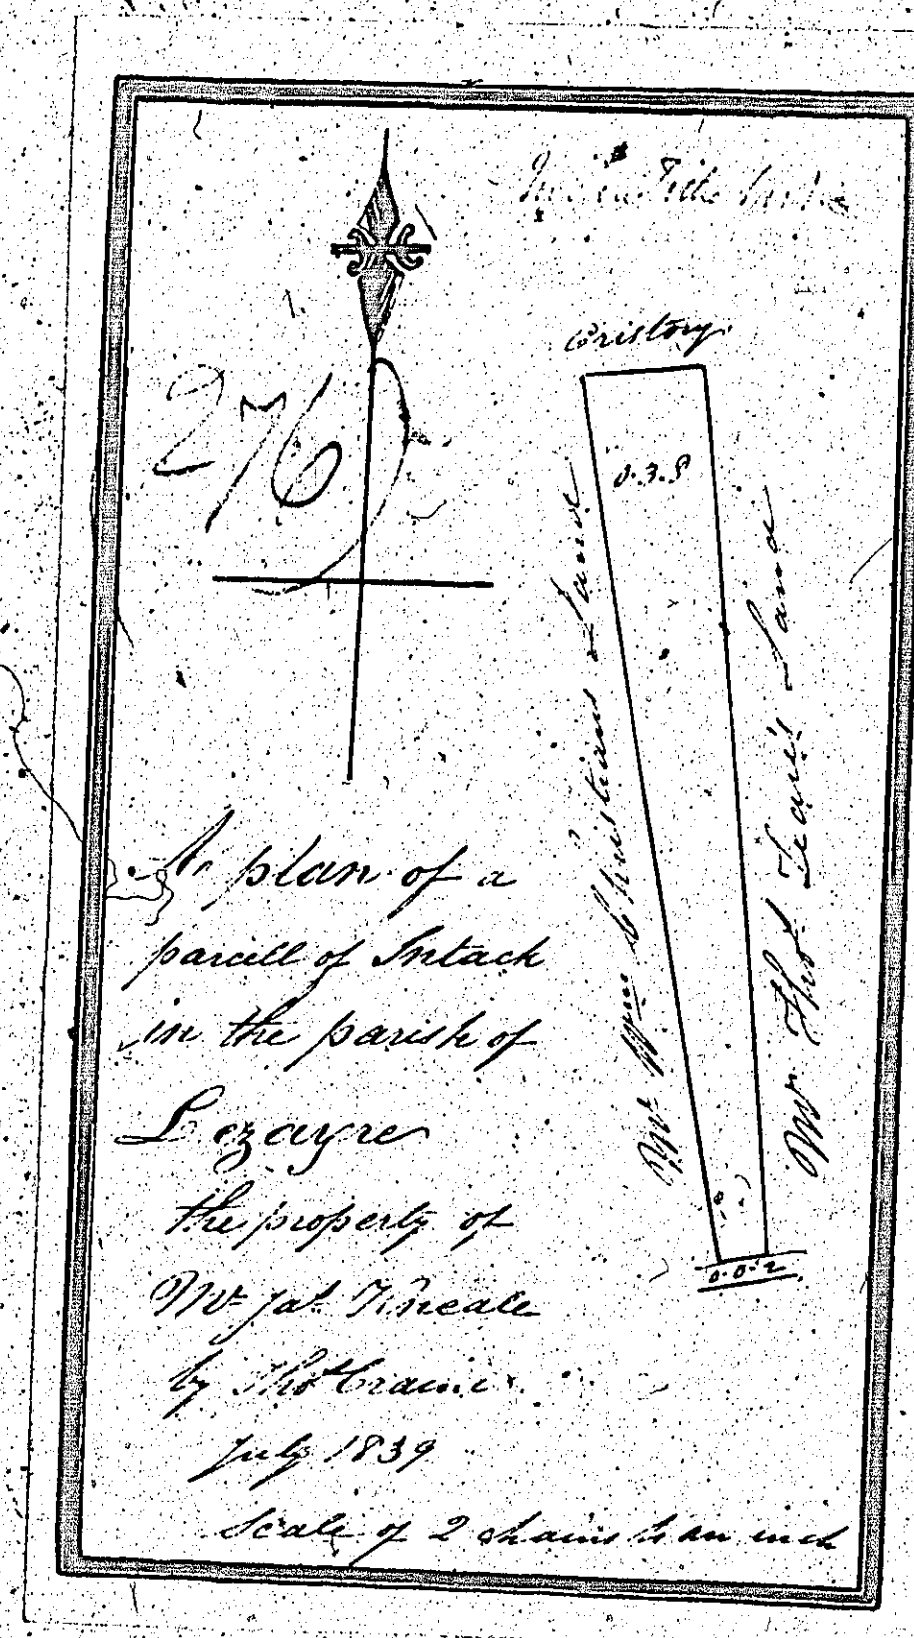 Tithe
Cristory
276
0.3.8
Mr Wm Christians Land
Mr Thos Tear's Land
0.0.2
A plan of a
parcell of Intack
in the parish of
Lezayre
the property of
Mr Jas Kneale
by Thos Craine
July 1839
Scale of 2 chains to an inch